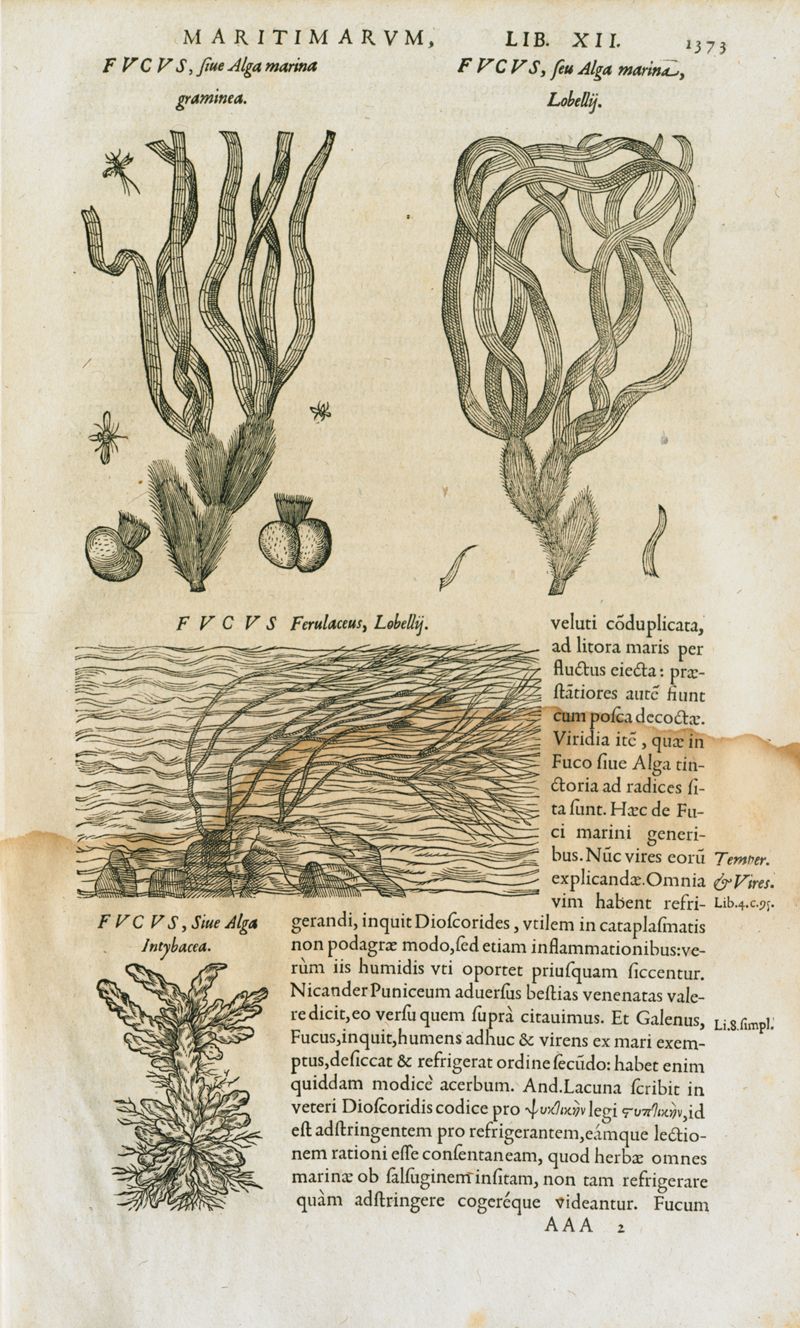 MARITIMARVM, LIB. XII. 1373
FVCVS, ſiue Alga marina
graminea.
FVCVS, ſeu Alga marina,
Lobellij.
FVCVS Ferulaceus, Lobellij.
veluti cōduplicata,
ad litora maris per
fluctus eiecta: præ-
ſtātiores autē fiunt
cum poſca decoctæ.
Viridia itē, quæ in
Fuco ſiue Alga tin-
ctoria ad radices ſi-
ta ſunt. Hæc de Fu-
ci marini generi-
bus. Nūc vires eorū
explicandæ. Omnia
vim habent refri-
Temper.
& Vires.
Lib.4.c.95.
FVCVS, Siue Alga
Intybacea.
gerandi, inquit Dioſcorides, vtilem in cataplaſmatis
non podagræ modo, ſed etiam inflammationibus: ve-
rùm iis humidis vti oportet priuſquam ſiccentur.
Nicander Puniceum aduerſus beſtias venenatas vale-
re dicit, eo verſu quem ſuprà citauimus. Et Galenus,
Li.8.ſimpl.
Fucus, inquit, humens adhuc & virens ex mari exem-
ptus, deſiccat & refrigerat ordine ſecūdo: habet enim
quiddam modicè acerbum. And. Lacuna ſcribit in
veteri Dioſcoridis codice pro ψυκτικὴν legi στυπτικὴν, id
eſt adſtringentem pro refrigerantem, eámque lectio-
nem rationi eſſe conſentaneam, quod herbæ omnes
marinæ ob ſalſuginem inſitam, non tam refrigerare
quàm adſtringere cogeréque videantur. Fucum
AAA 2